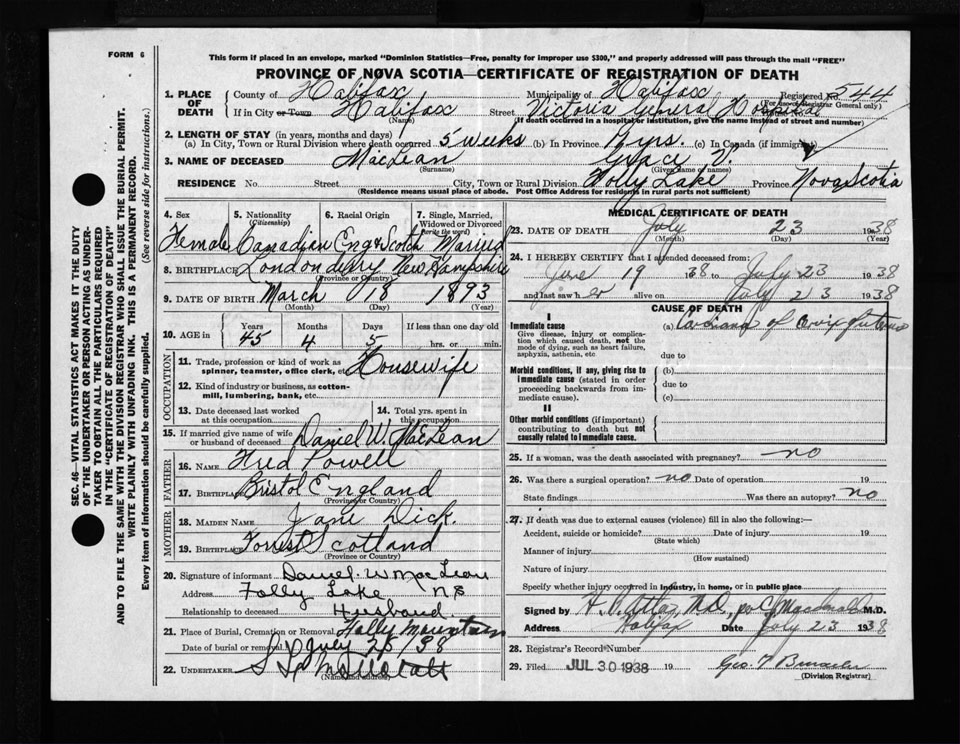 FORM 6
This form if placed in an envelope, marked "Dominion Statistics—Free, penalty for improper use $300," and properly addressed will pass through the mail "FREE"
PROVINCE OF NOVA SCOTIA—CERTIFICATE OF REGISTRATION OF DEATH
1. PLACE OF DEATH County of Halifax Municipality of Halifax Registered No. 544
(For use of Registrar General only)
If in City or Town Halifax Street Victoria General Hospital
(Name) (If death occurred in a hospital or institution, give the name instead of street and number)
2. LENGTH OF STAY (in years, months and days)
(a) In City, Town or Rural Division where death occurred 5 weeks (b) In Province yrs. (c) In Canada (if immigrant)
3. NAME OF DECEASED MacLean Gracy V.
(Surname) (Given name or names)
RESIDENCE No. Street City, Town or Rural Division Folly Lake Province Nova Scotia
(Residence means usual place of abode. Post Office Address for residents in rural parts not sufficient)
4. Sex 5. Nationality (Citizenship) 6. Racial Origin 7. Single, Married, Widowed or Divorced (write the word)
Female Canadian Eng & Scotch Married
8. BIRTHPLACE Londonderry New Hampshire
(Province or Country)
9. DATE OF BIRTH March 18 1893
(Month) (Day) (Year)
10. AGE in Years Months Days If less than one day old
45 4 5 hrs. or min.
OCCUPATION
11. Trade, profession or kind of work as spinner, teamster, office clerk, etc. Housewife
12. Kind of industry or business, as cotton-mill, lumbering, bank, etc.
13. Date deceased last worked at this occupation
14. Total yrs. spent in this occupation
15. If married give name of wife or husband of deceased Daniel W. MacLean
FATHER
16. NAME Fred Powell
17. BIRTHPLACE Bristol England
(Province or Country)
MOTHER
18. MAIDEN NAME Jane Dick.
19. BIRTHPLACE Forrest Scotland
(Province or Country)
20. Signature of informant Daniel W MacLean
Address Folly Lake NS
Relationship to deceased Husband
21. Place of Burial, Cremation or Removal Folly Mountain
Date of burial or removal July 25/38
22. UNDERTAKER
(Name and address)
MEDICAL CERTIFICATE OF DEATH
23. DATE OF DEATH July 23 1938
(Month) (Day) (Year)
24. I HEREBY CERTIFY that I attended deceased from:
June 19 1938 to July 23 1938
and last saw her alive on July 23 1938
CAUSE OF DEATH
I
Immediate cause
Give disease, injury or complication which caused death, not the mode of dying, such as heart failure, asphyxia, asthenia, etc
(a) of
due to
Morbid conditions, if any, giving rise to immediate cause (stated in order proceeding backwards from immediate cause).
(b)
due to
(c)
II
Other morbid conditions (if important) contributing to death but not causally related to immediate cause.
25. If a woman, was the death associated with pregnancy? no
26. Was there a surgical operation? no Date of operation 19
State findings Was there an autopsy? no
27. If death was due to external causes (violence) fill in also the following:—
Accident, suicide or homicide? Date of injury 19
(State which)
Manner of injury
(How sustained)
Nature of injury
Specify whether injury occurred in Industry, in home, or in public place
Signed by M.D.
Address Halifax Date July 23 1938
28. Registrar's Record Number
29. Filed JUL 30 1938 19
(Division Registrar)
SEC. 46—VITAL STATISTICS ACT MAKES IT THE DUTY
OF THE UNDERTAKER OR PERSON ACTING AS UNDER-
TAKER TO OBTAIN ALL THE PARTICULARS REQUIRED
IN THE "CERTIFICATE OF REGISTRATION OF DEATH"
AND TO FILE THE SAME WITH THE DIVISION REGISTRAR WHO SHALL ISSUE THE BURIAL PERMIT.
WRITE PLAINLY WITH UNFADING INK. THIS IS A PERMANENT RECORD.
Every item of information should be carefully supplied. (See reverse side for instructions.)